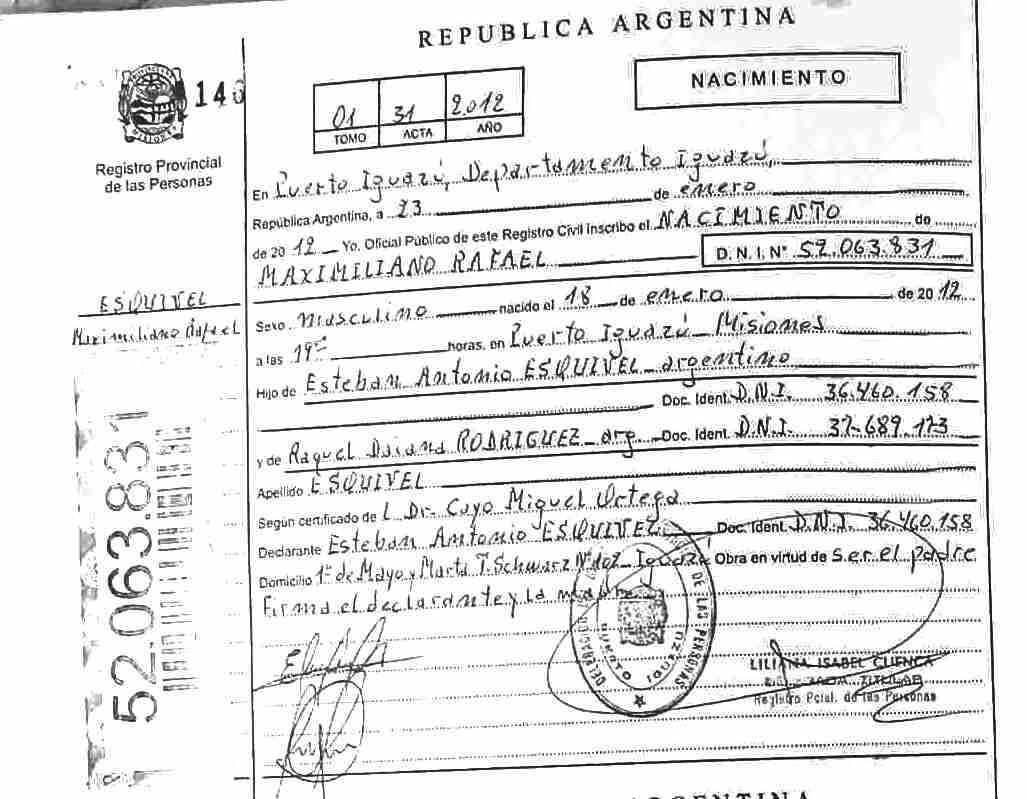 REPUBLICA ARGENTINA
NACIMIENTO
146
MISIONES
Registro Provincial
de las Personas
01 31 2.012
TOMO ACTA AÑO
En Puerto Iguazú, Departamento Iguazú,
República Argentina, a 23 de enero
de 20 12 Yo, Oficial Público de este Registro Civil inscribo el NACIMIENTO de
MAXIMILIANO RAFAEL D. N. I. N° 52.063.831
ESQUIVEL
Maximiliano Rafael
Sexo masculino nacido el 18 de enero de 2012
a las 19 horas, en Puerto Iguazú Misiones
Hijo de Esteban Antonio ESQUIVEL argentino
Doc. Ident. D.N.I. 36.460.158
y de Raquel Daiana RODRIGUEZ arg. Doc. Ident. D.N.I. 37.689.173
Apellido ESQUIVEL
Según certificado de l Dr. Cayo Miguel Ortega
Declarante Esteban Antonio ESQUIVEL Doc. Ident. D.N.I. 36.460.158
Domicilio 1° de Mayo y Marta T. Schwarz N° 102 Iguazú Obra en virtud de Ser el padre
Firma el declarante y la madre
52.063.831
DE LAS PERSONAS
PUERTO IGUAZU
LILIANA ISABEL CUENCA
TITULAR
Registro Pcial. de las Personas